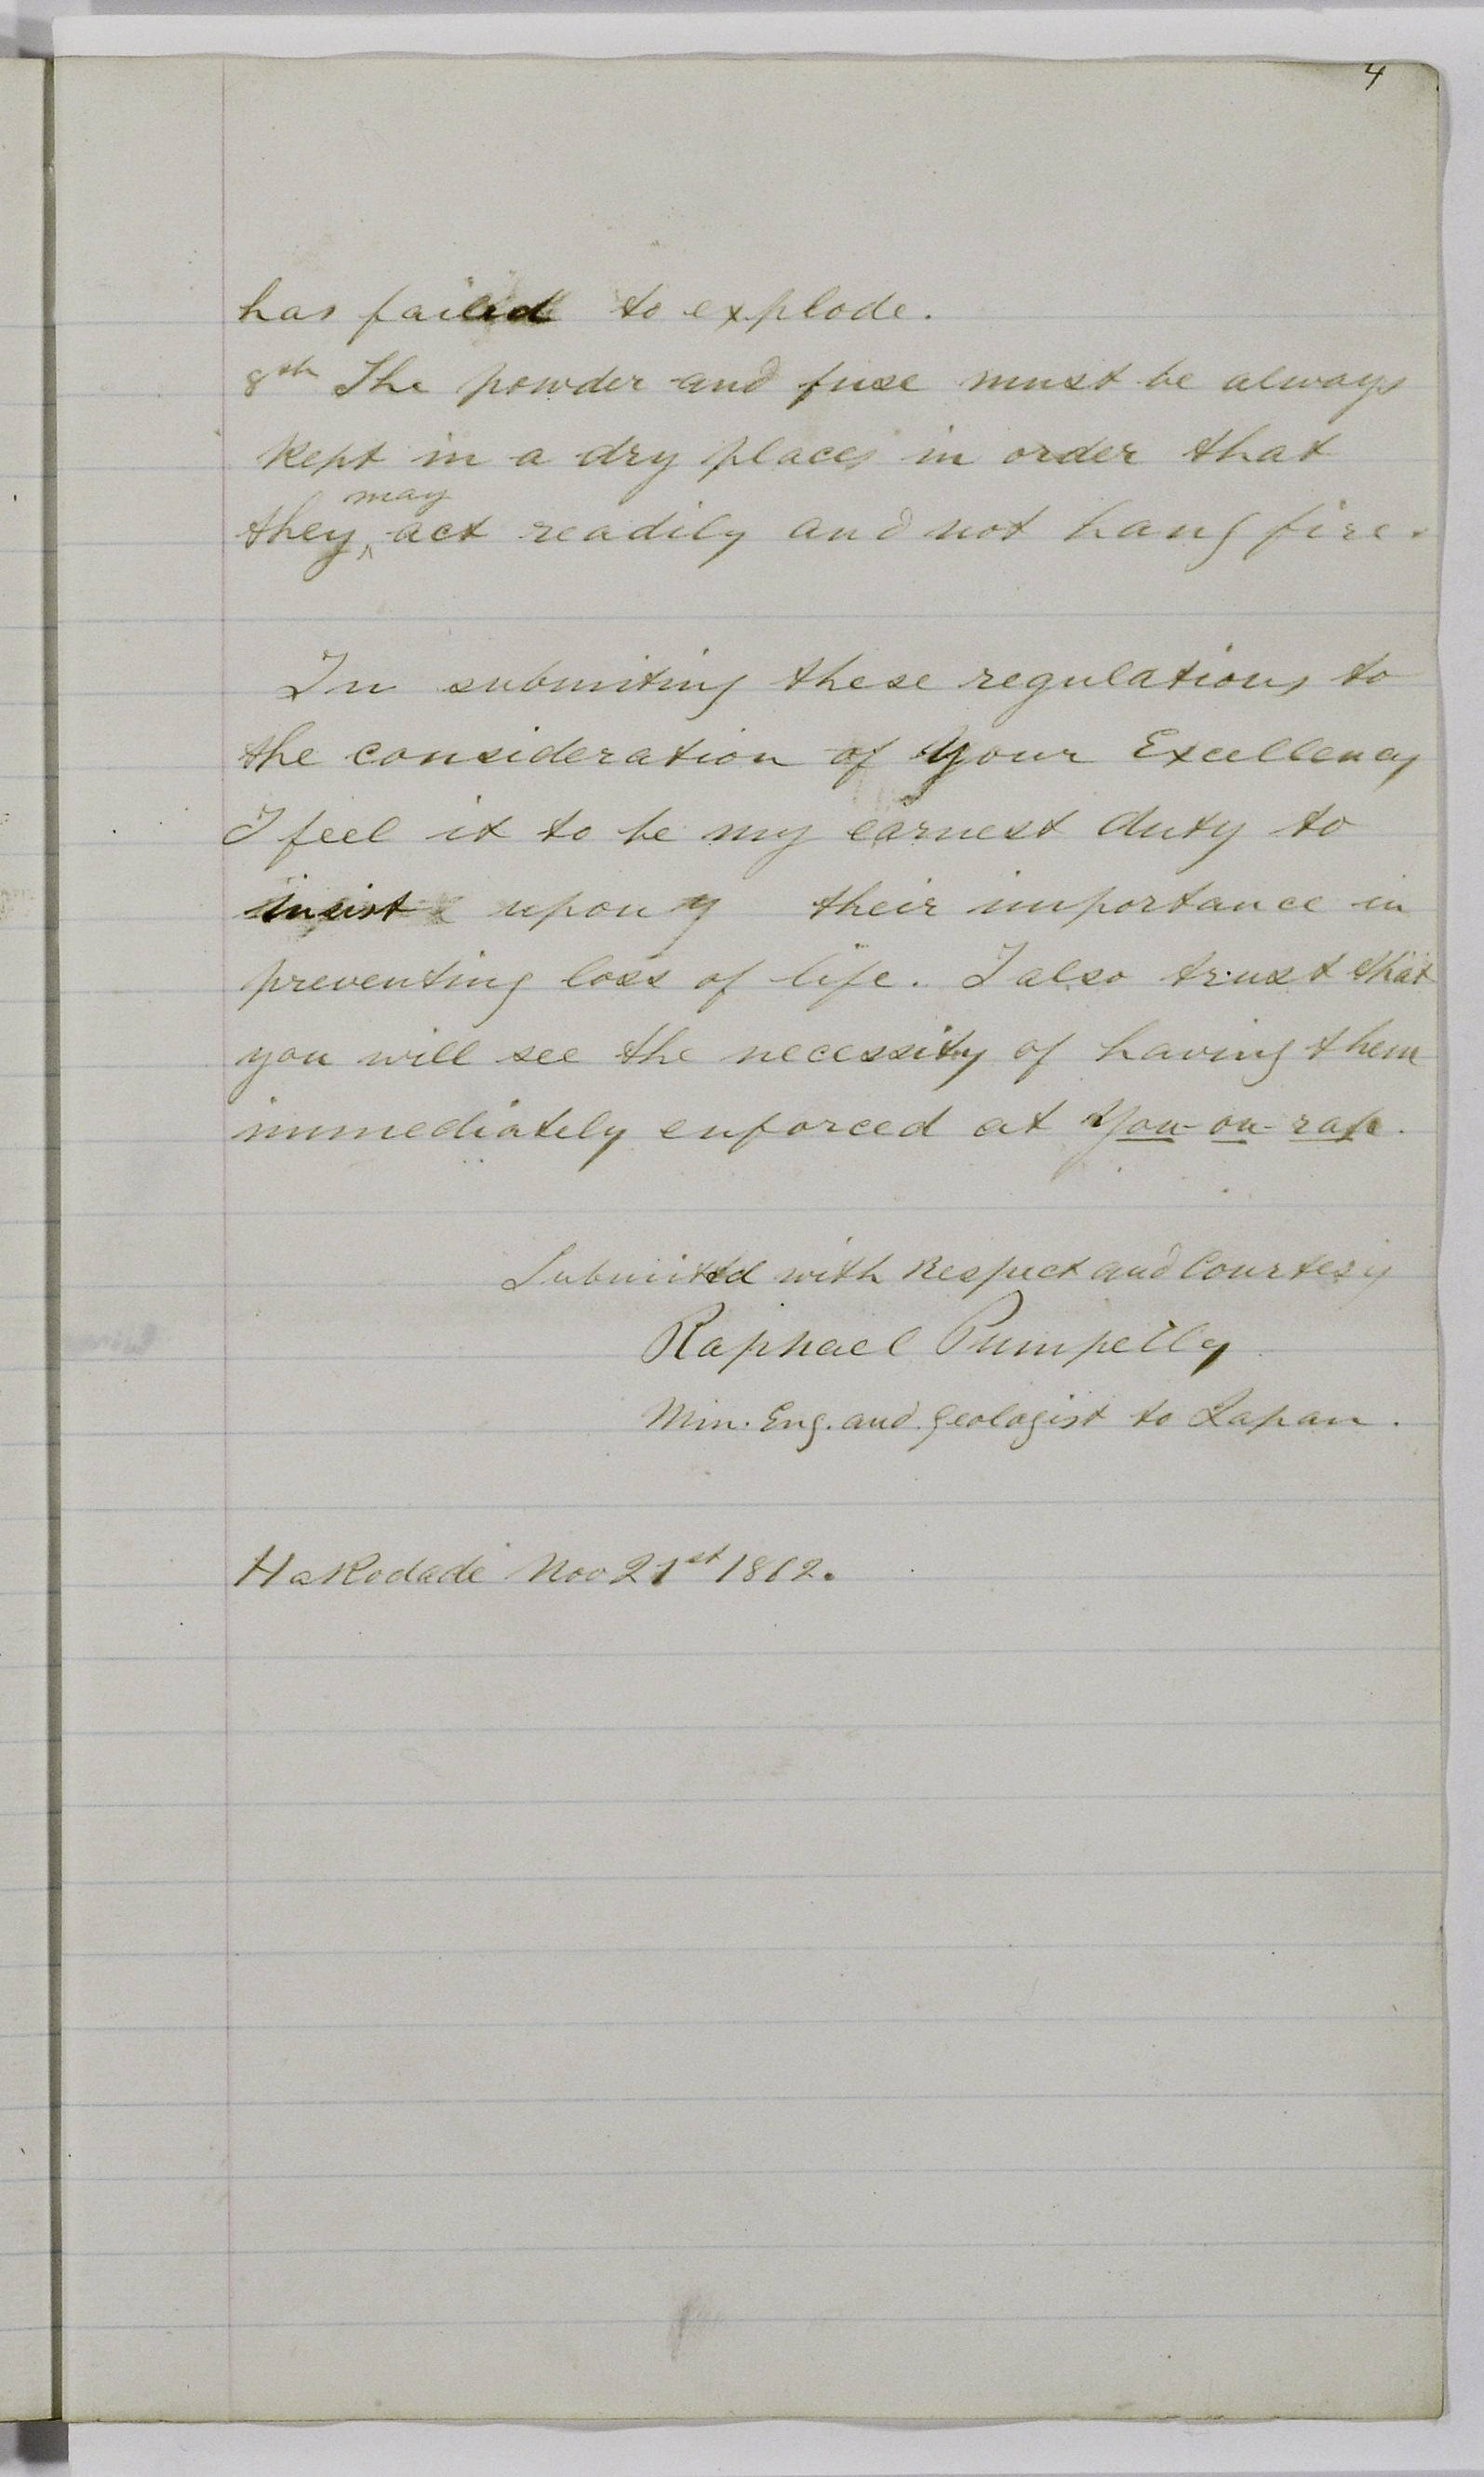 4
has failed to explode.
8th The powder and fuse must be always
kept in a dry places in order that
may
they ^ act readily and not hang fire.
In submiting these regulations to
the consideration of Your Excellency
I feel it to be my earnest duty to
insist upon their importance in
preventing loss of life. I also trust that
you will see the necessity of having them
immediately enforced at
Submitted with Respect and Courtesy
Raphael Pumpelly
Min. Eng. and Geologist to Japan.
Hakodade Nov 21st 1862.